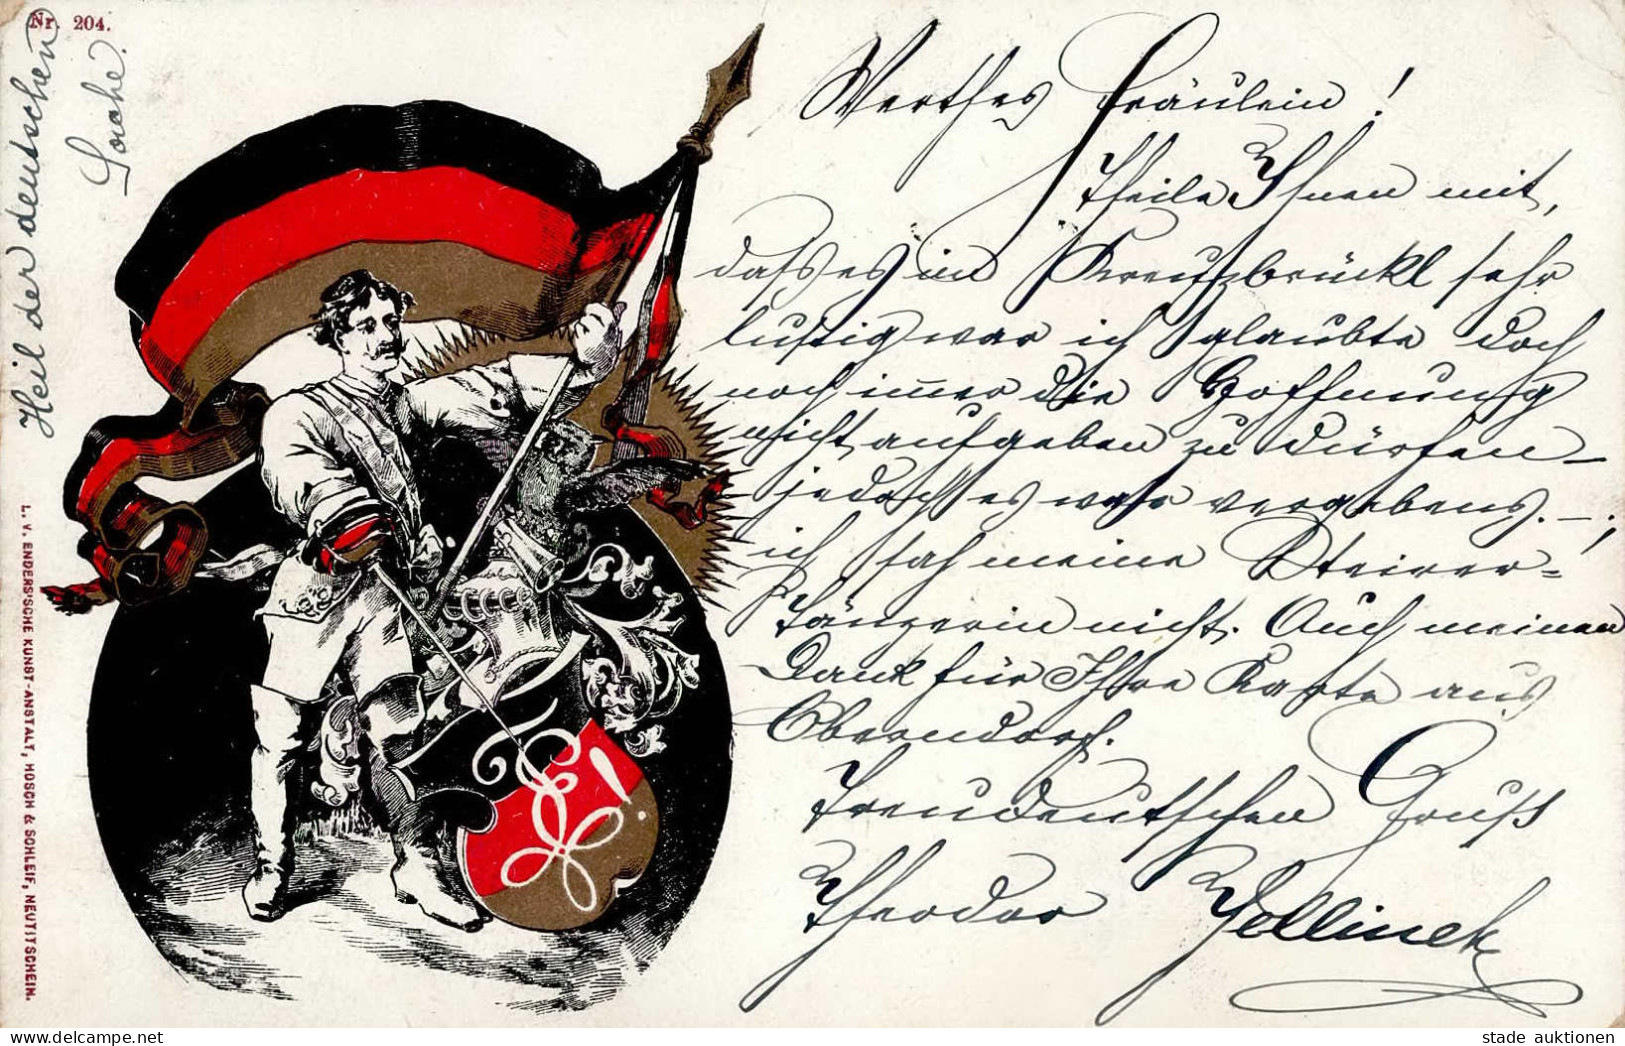 Nr. 204.
Heil der deutschen
Sache.
L. V. ENDERS'SCHE KUNST-ANSTALT, HOSCH & SCHLEIF, NEUTITSCHEIN.
Werthes Fräulein!
Theile Ihnen mit,
dass es in Kreuzbrückl sehr
lustig war ich glaubte doch
noch immer die Hoffnung
nicht aufgeben zu dürfen –
jedoch es war vergebens. –
ich sah meine Steirer-
tänzerin nicht. Auch meinen
Dank für Ihre Karte aus
Oberndorf.
Treudeutschen Gruß
Theodor Jellinek
stade auktionen